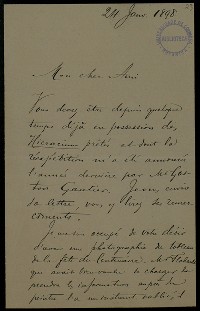 24 Janv 1898
Mon cher Ami
Vous devez être depuis quelque
temps déjà en possession des
Hieracium prêtés et dont la
réexpédition m'a été annoncée
l'année dernière par Mr Gaston
Gautier. Je vous envoie
sa lettre, vous y lirez ses remer-
ciements.
Je me suis occupé de votre désir
d'avoir une photographie du tableau
de la fête du Centenaire. Mr
qui avait bien voulu se charger de
prendre des informations auprès du
peintre l'a maintenant oublié, et